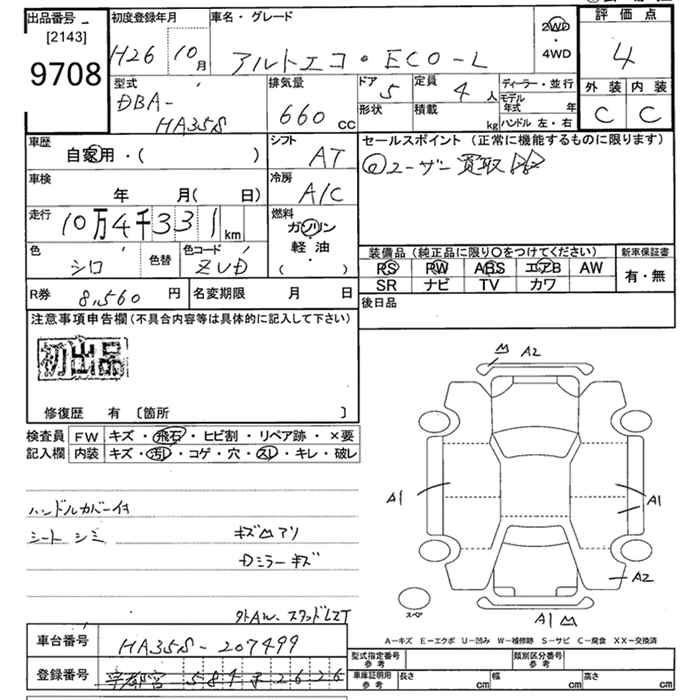 出品番号
[2143]
9708
初度登録年月
H26 10月
車名・グレード
アルトエコ・ECO-L
2WD
・
4WD
評価点
4
外装 内装
C C
型式
DBA-
HA35S
排気量
660 cc
ドア 5
定員 4人
形状
積載 kg
ディーラー・並行
モデル年式 年
ハンドル 左・右
車歴
自家用・( )
シフト
AT
車検
年 月( 日)
冷房
A/C
走行
10万4千331km
燃料
ガソリン
軽油
( ・ )
色
シロ
色替
色コード
ZVD
R券 8,560円
名変期限 月 日
セールスポイント (正常に機能するものに限ります)
ユーザー買取
装備品 (純正品に限り○をつけてください)
PS PW ABS エアB AW
SR ナビ TV カワ
新車保証書
有・無
後日品
注意事項申告欄(不具合内容等は具体的に記入して下さい)
初出品
修復歴 有 〔箇所 〕
検査員記入欄
FW キズ・飛石・ヒビ割・リペア跡・×要
内装 キズ・汚レ・コゲ・穴・スレ・キレ・破レ
ハンドルカバー付
シート シミ
キズ凹アリ
Dミラーキズ
外AW、スタッドLZT
凹 A2
A1
A1
A2
スペア
A1 凹
A-キズ E-エクボ U-凹み W-補修跡 S-サビ C-腐食 XX-交換済
車台番号
HA35S-207499
登録番号
宇都宮 584 そ 2626
型式指定番号
参考
類別区分番号
参考
車庫証明用
参考
長さ cm
幅 cm
高さ cm